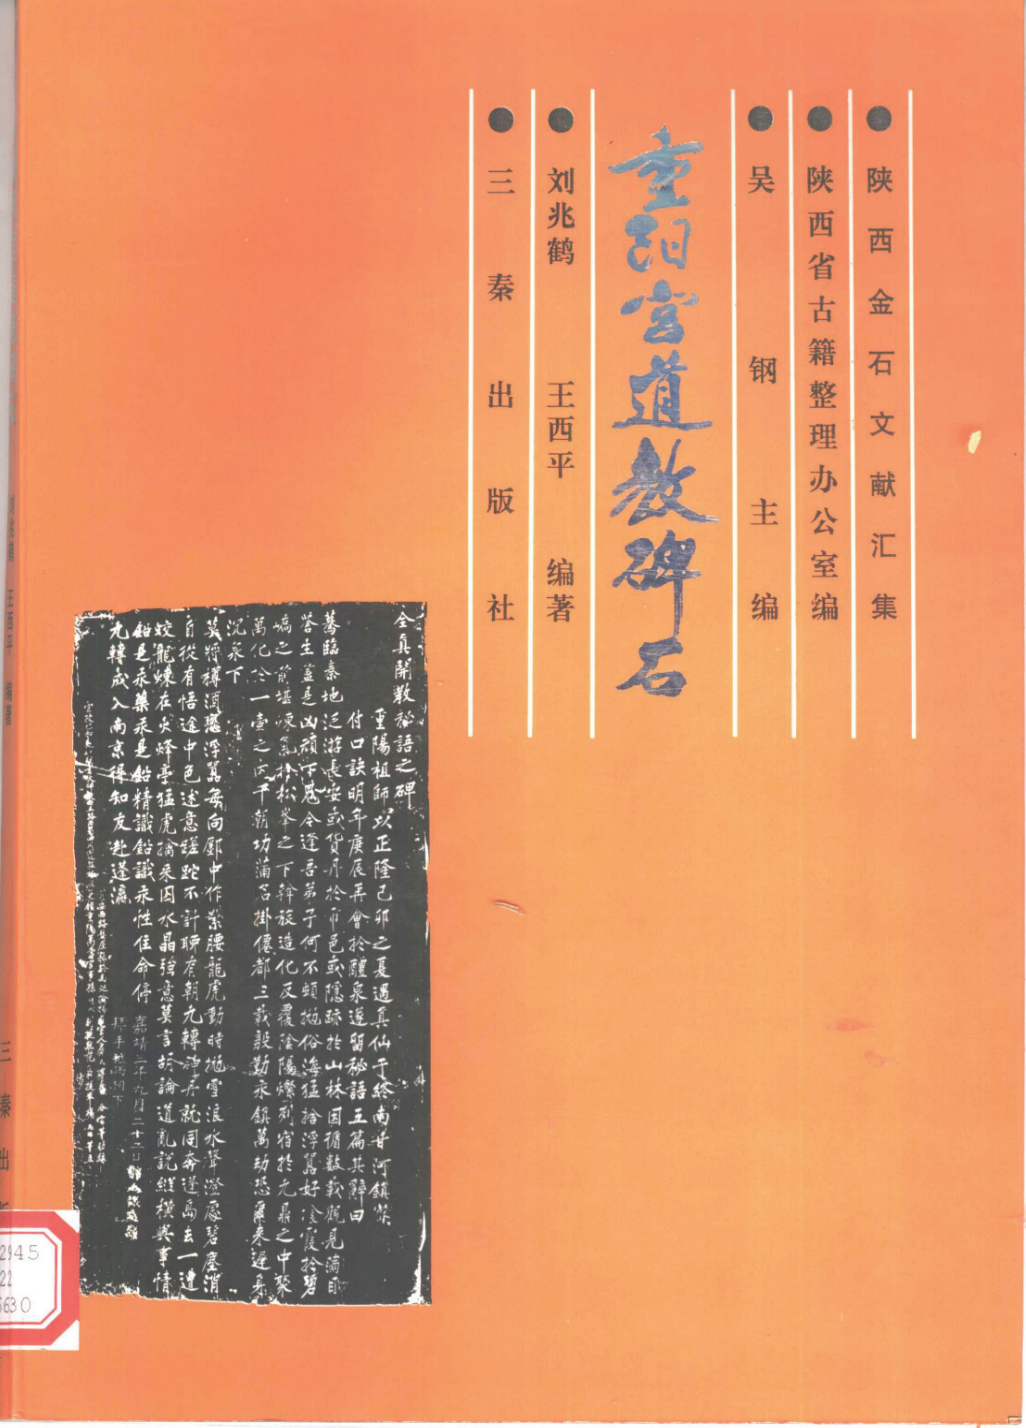 陕西金石文献汇集
陕西省古籍整理办公室编
吴钢主编
重阳宫道教碑石
刘兆鹤 王西平 编著
三秦出版社
全真開教秘語之碑
重陽祖師以正隆己卯之夏遇真仙于終南甘河鎮
付口訣明年庚辰再會於醴泉遂留秘語五篇其辭曰
驀臨秦地泛游長安或貨丹於市邑或隱跡於山林因循數載觀見滿目
蒼生盡是凶頑下鬼今逢吾弟子何不頓拋俗海猛捨浮囂好凌霞於碧
嶠之前堪煉氣於松峯之下斡旋造化反覆陰陽燦列宿於九鼎之中聚
萬化於一壺之內千朝功滿名掛僊都三載殷勤永鎮萬劫恐爾來遲身
沉泉下
莫將樽酒戀浮囂每向鄽中作繫腰龍虎動時拋雪浪水聲澄處碧塵消
自從有悟途中色述意蹉跎不計聊有朝九轉神丹就同奔蓬島去一遭
蛟龍煉在火烽亭猛虎擒來囚水晶強意莫言胡論道亂說縱橫與事情
鉛是汞藥汞是鉛精識鉛識汞性住命停
九轉成入南京得知友赴蓬瀛
嘉靖三年九月二十二日
三秦出
2945
22
5630